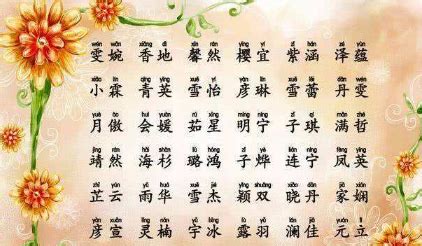 wén wǎn xiāng dì xīn rán yīng yí zǐ hán zé yùn
雯婉 香地 馨然 樱宜 紫涵 泽蕴
xiǎo lín qīng yīng xuě yí yàn lín xuě lěi dān wén
小霖 青英 雪怡 彦琳 雪蕾 丹雯
yuè ào huì yuán rú xīng míng níng zǐ qí mǎn zhé
月傲 会媛 茹星 明宁 子琪 满哲
jìng rán hǎi shān lù hóng zǐ yè lián níng fèng yīng
靖然 海杉 璐鸿 子烨 连宁 凤英
zhǐ yún yǔ huá xuě jié yǐng shuāng xiǎo dān jiā xián
芷云 雨华 雪杰 颖双 晓丹 家娴
yàn xuān líng nán yǔ bīng lù yǔ lán jiā yuán lì
彦宣 灵楠 宇冰 露羽 澜佳 元立